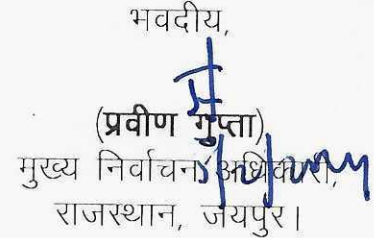 भवदीय,
(प्रवीण गुप्ता)
मुख्य निर्वाचन अधिकारी,
राजस्थान, जयपुर।